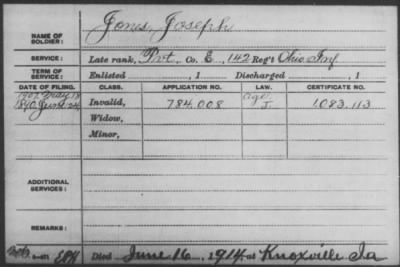 Jones, Joseph
NAME OF
SOLDIER:
SERVICE: Late rank, Pvt, Co. E, 142 Reg't Ohio Inf
TERM OF
SERVICE: Enlisted , 1 Discharged , 1
DATE OF FILING. CLASS. APPLICATION NO. LAW. CERTIFICATE NO.
1907 May 18 Age
1890 June 24 Invalid, 784,008 J. 1083,113
Widow,
Minor,
ADDITIONAL
SERVICES:
REMARKS:
Died June 16, 1914 at Knoxville Ia